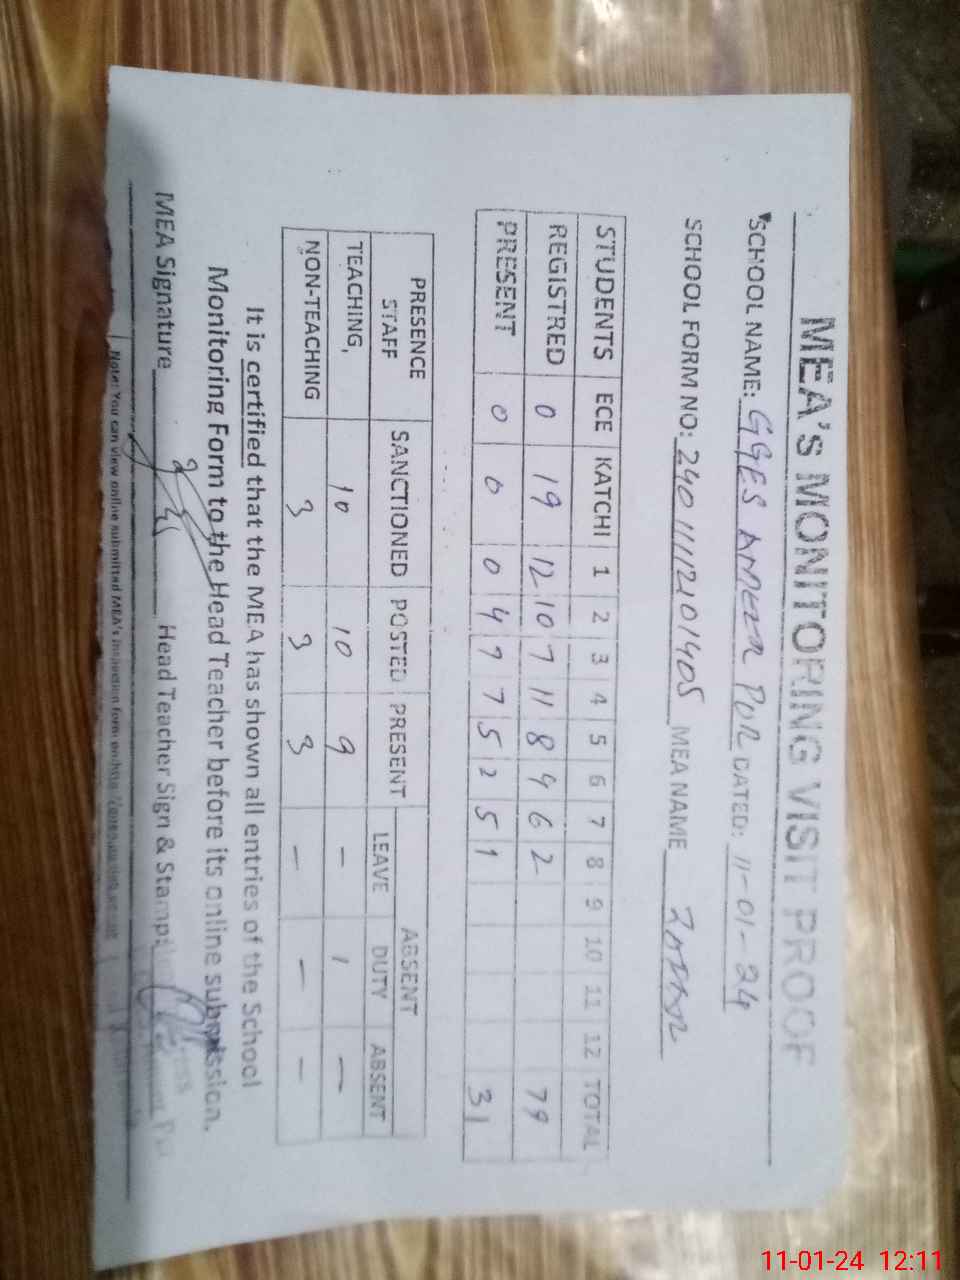 MEA's MONITORING VISIT PROOF
SCHOOL NAME: GGES AMEER PUR DATED: 11-01-24
SCHOOL FORM NO: 24011111201405 MEA NAME
STUDENTS ECE KATCHI 1 2 3 4 5 6 7 8 9 10 11 12 TOTAL
REGISTRED 0 19 12 10 7 11 8 4 6 2 79
PRESENT 0 0 0 4 7 7 5 2 5 1 31
PRESENCE STAFF SANCTIONED POSTED PRESENT ABSENT
LEAVE DUTY ABSENT
TEACHING, 10 10 9 - 1 -
NON-TEACHING 3 3 3 - - -
It is certified that the MEA has shown all entries of the School
Monitoring Form to the Head Teacher before its online submission.
MEA Signature Head Teacher Sign & Stamp
Note: You can view online submitted MEA's inspection form on
11-01-24 12:11